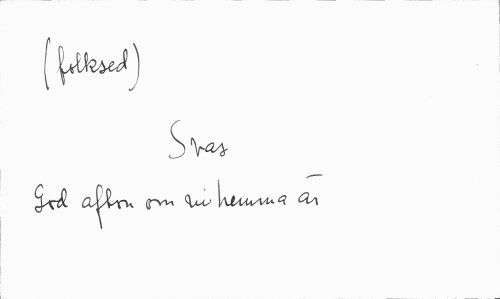 (folksed)
Svas
God afton om ni hemma är